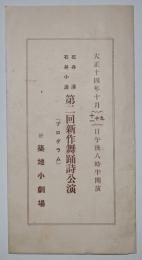 大正十四年十月九、十、十一日午後八時半開演
石井漠
石井小浪
第二回新作舞踊詩公演
(プログラム)
於 築地小劇場